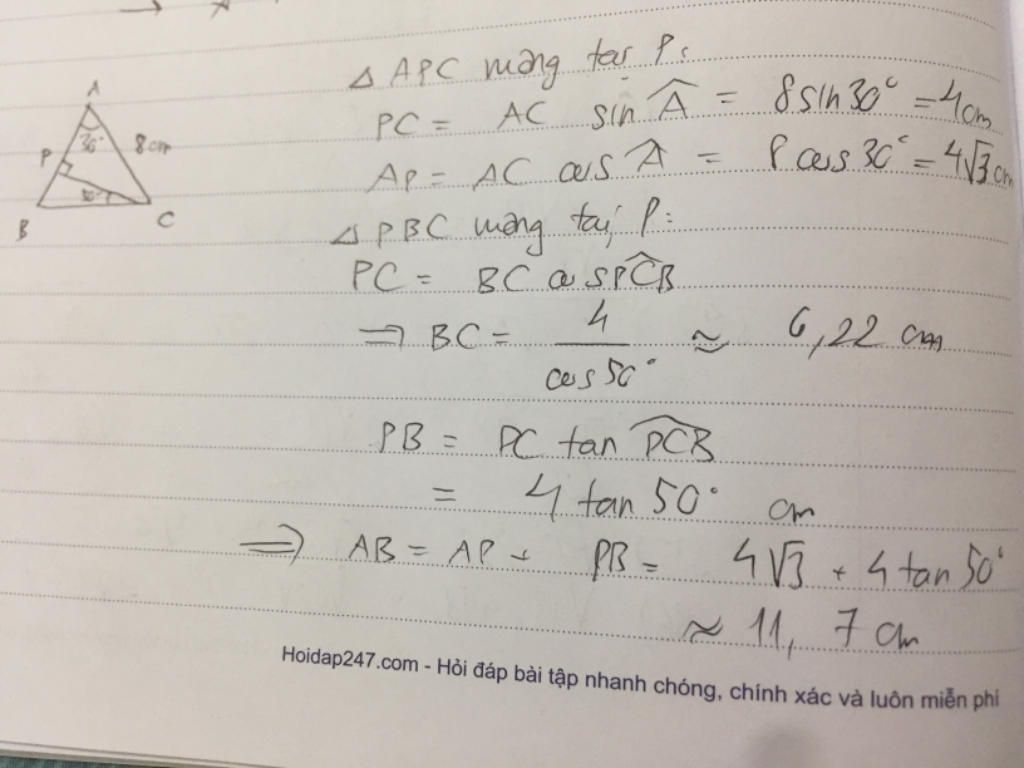 A
30°
8cm
P
50°
B
C
△ APC vuông tại P:
PC = AC sin Â = 8 sin 30° = 4cm
AP = AC cos Â = 8 cos 30° = 4√3 cm
△ PBC vuông tại P:
PC = BC cos PCB
⇒ BC = 4 / cos 50° ≈ 6,22 cm
PB = PC tan PCB
= 4 tan 50° cm
⇒ AB = AP + PB = 4√3 + 4 tan 50°
≈ 11,7 cm
Hoidap247.com - Hỏi đáp bài tập nhanh chóng, chính xác và luôn miễn phí